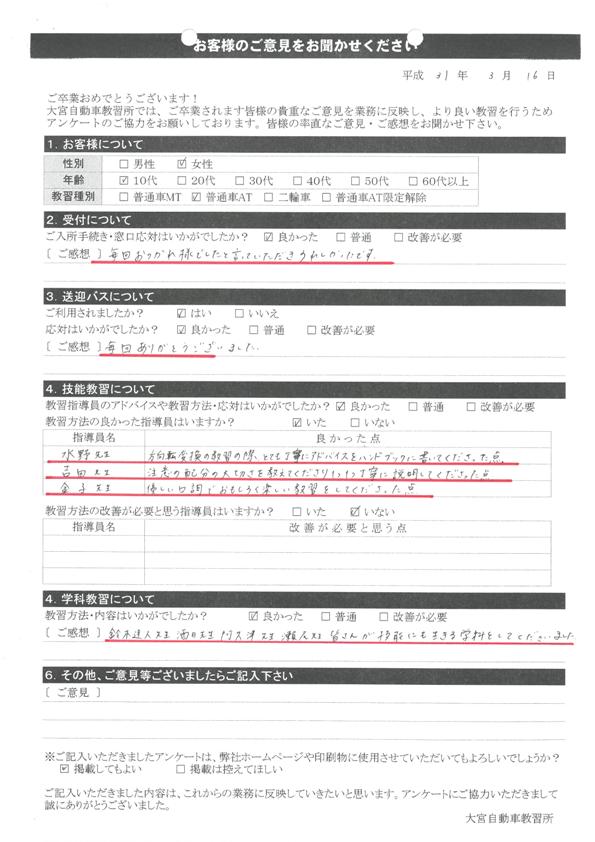 お客様のご意見をお聞かせください
平成 31 年 3 月 16 日
ご卒業おめでとうございます！
大宮自動車教習所では、ご卒業されます皆様の貴重なご意見を業務に反映し、より良い教習を行うため
アンケートのご協力をお願いしております。皆様の率直なご意見・ご感想をお聞かせ下さい。
1. お客様について
性別 □ 男性 ☑ 女性
年齢 ☑ 10代 □ 20代 □ 30代 □ 40代 □ 50代 □ 60代以上
教習種別 □ 普通車MT ☑ 普通車AT □ 二輪車 □ 普通車AT限定解除
2. 受付について
ご入所手続き・窓口応対はいかがでしたか？ ☑ 良かった □ 普通 □ 改善が必要
[ ご感想 ] 毎回おつかれ様でしたと言っていただきうれしかったです。
3. 送迎バスについて
ご利用されましたか？ ☑ はい □ いいえ
応対はいかがでしたか？ ☑ 良かった □ 普通 □ 改善が必要
[ ご感想 ] 毎回ありがとうございました。
4. 技能教習について
教習指導員のアドバイスや教習方法・応対はいかがでしたか？ ☑ 良かった □ 普通 □ 改善が必要
教習方法の良かった指導員はいますか？ ☑ いた □ いない
指導員名 良かった点
水野先生 方向転換の教習の際、とても丁寧にアドバイスをハンドブックに書いてくださった点
吉田先生 注意の配分の大切さを教えてくださり1つ1つ丁寧に説明してくださった点
金子先生 優しい口調でおもしろく楽しい教習をしてくださった点
教習方法の改善が必要と思う指導員はいますか？ □ いた ☑ いない
指導員名 改善が必要と思う点
4. 学科教習について
教習方法・内容はいかがでしたか？ ☑ 良かった □ 普通 □ 改善が必要
[ ご感想 ] 鈴木達人先生 酒日先生 阿久津先生 瀬尾先生 皆さんが技能にも生きる学科をしてくださいました
6. その他、ご意見等ございましたらご記入下さい
[ ご意見 ]
※ご記入いただきましたアンケートは、弊社ホームページや印刷物に使用させていただいてもよろしいでしょうか？
☑ 掲載してもよい □ 掲載は控えてほしい
ご記入いただきました内容は、これからの業務に反映していきたいと思います。アンケートにご協力いただきまして
誠にありがとうございました。
大宮自動車教習所